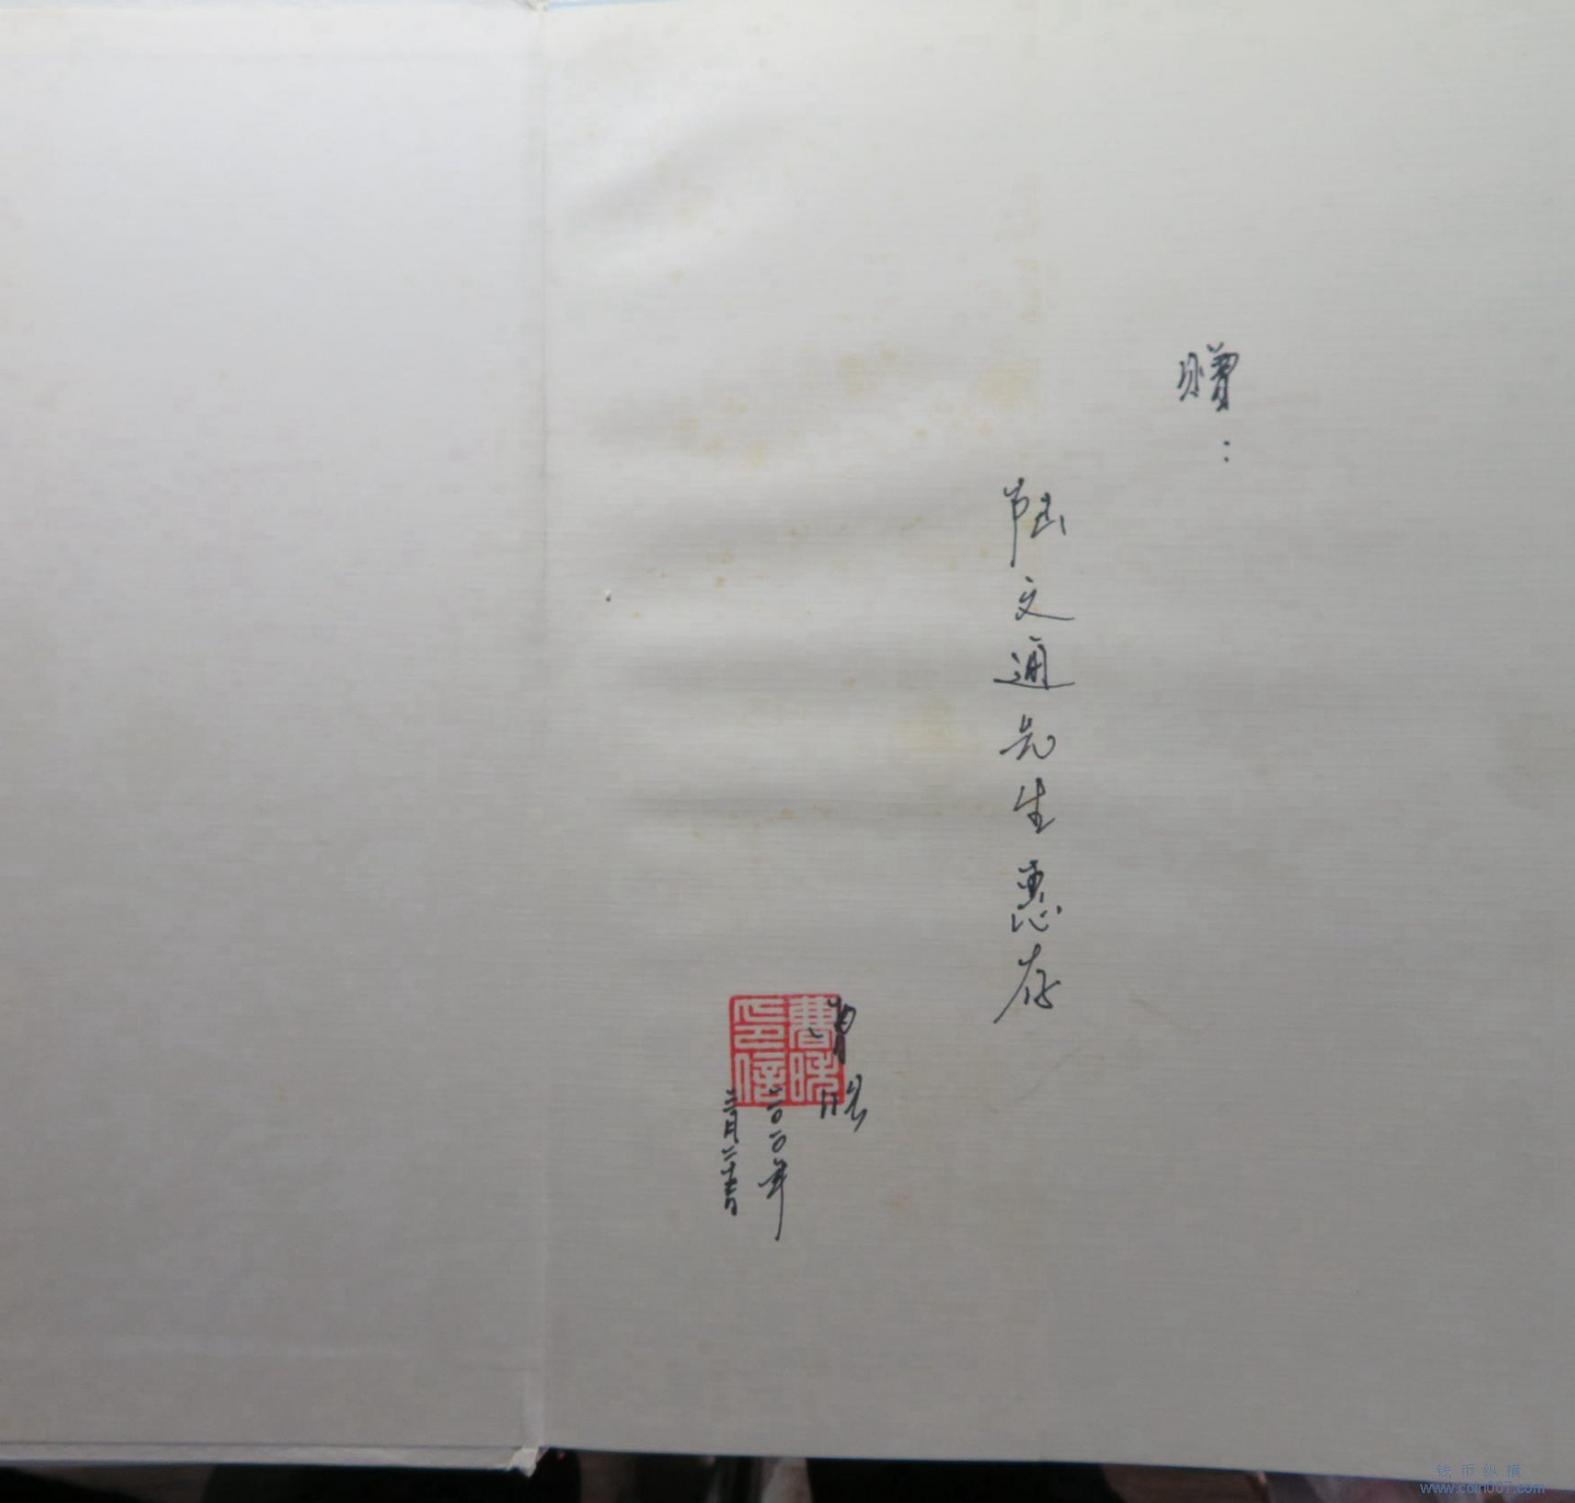 赠：
陆文通先生惠存
曹
二〇一〇年
三月二十五日
曹
印信
钱币纵横
www.coin007.com